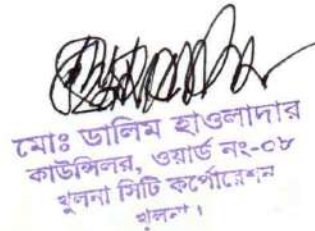 মোঃ ডালিম হাওলাদার
কাউন্সিলর, ওয়ার্ড নং-০৮
খুলনা সিটি কর্পোরেশন
খুলনা।